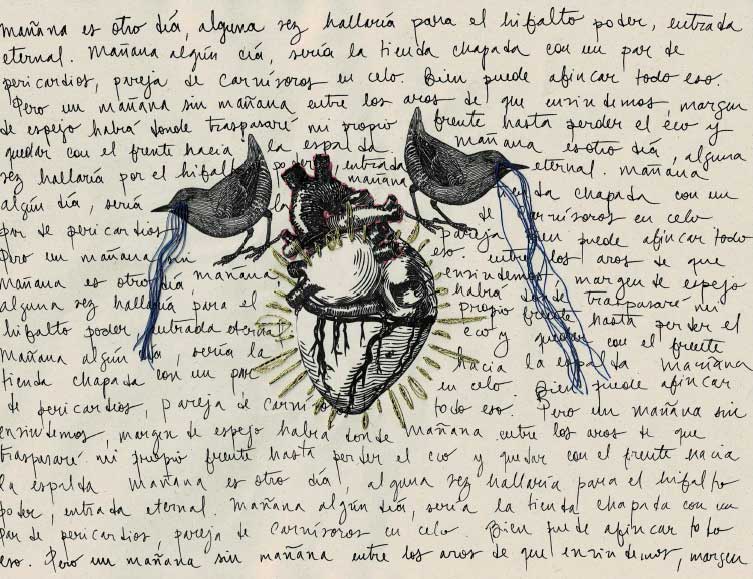 mañana es otro día, alguna vez hallaría para el hifalto poder, entrada
eternal. Mañana algún día, sería la tienda chapada con un par de
pericardios, pareja de carnívoros en celo. Bien puede afincar todo eso.
Pero un mañana sin mañana entre los aros de que enviudemos, margen
de espejo habrá donde traspasaré mi propio frente hasta perder el eco y
quedar con el frente hacia la espalda mañana esotro día, alguna
vez hallaría por el hifalto poder, entrada eternal. mañana
algún día, sería mañana chapada con un
par de pericardios de carnívoros en celo
Pero un mañana sin pareja Bien puede afincar todo
mañana es otro día, mañana, eso. entre los aros de que
alguna vez hallaría para el enviudemos, margen de espejo
hifalto poder, entrada eternal habrá donde traspasaré mi
Mañana algún día, sería la propio frente hasta perder el
tienda chapada con un par eco y quedar con el frente
de pericardios, pareja de carnívoros hacia la espalda mañana
enviudemos, margen de espejo habrá donde en celo. Bien puede afincar
todo eso. Pero un mañana sin
mañana entre los aros de que
traspasaré mi propio frente hasta perder el eco y quedar con el frente hacia
la espalda mañana es otro día, alguna vez hallaría para el hifalto
poder, entrada eternal. Mañana algún día, sería la tienda chapada con un
par de pericardios, pareja de carnívoros en celo. Bien puede afincar todo
eso. Pero un mañana sin mañana entre los aros de que enviudemos, margen